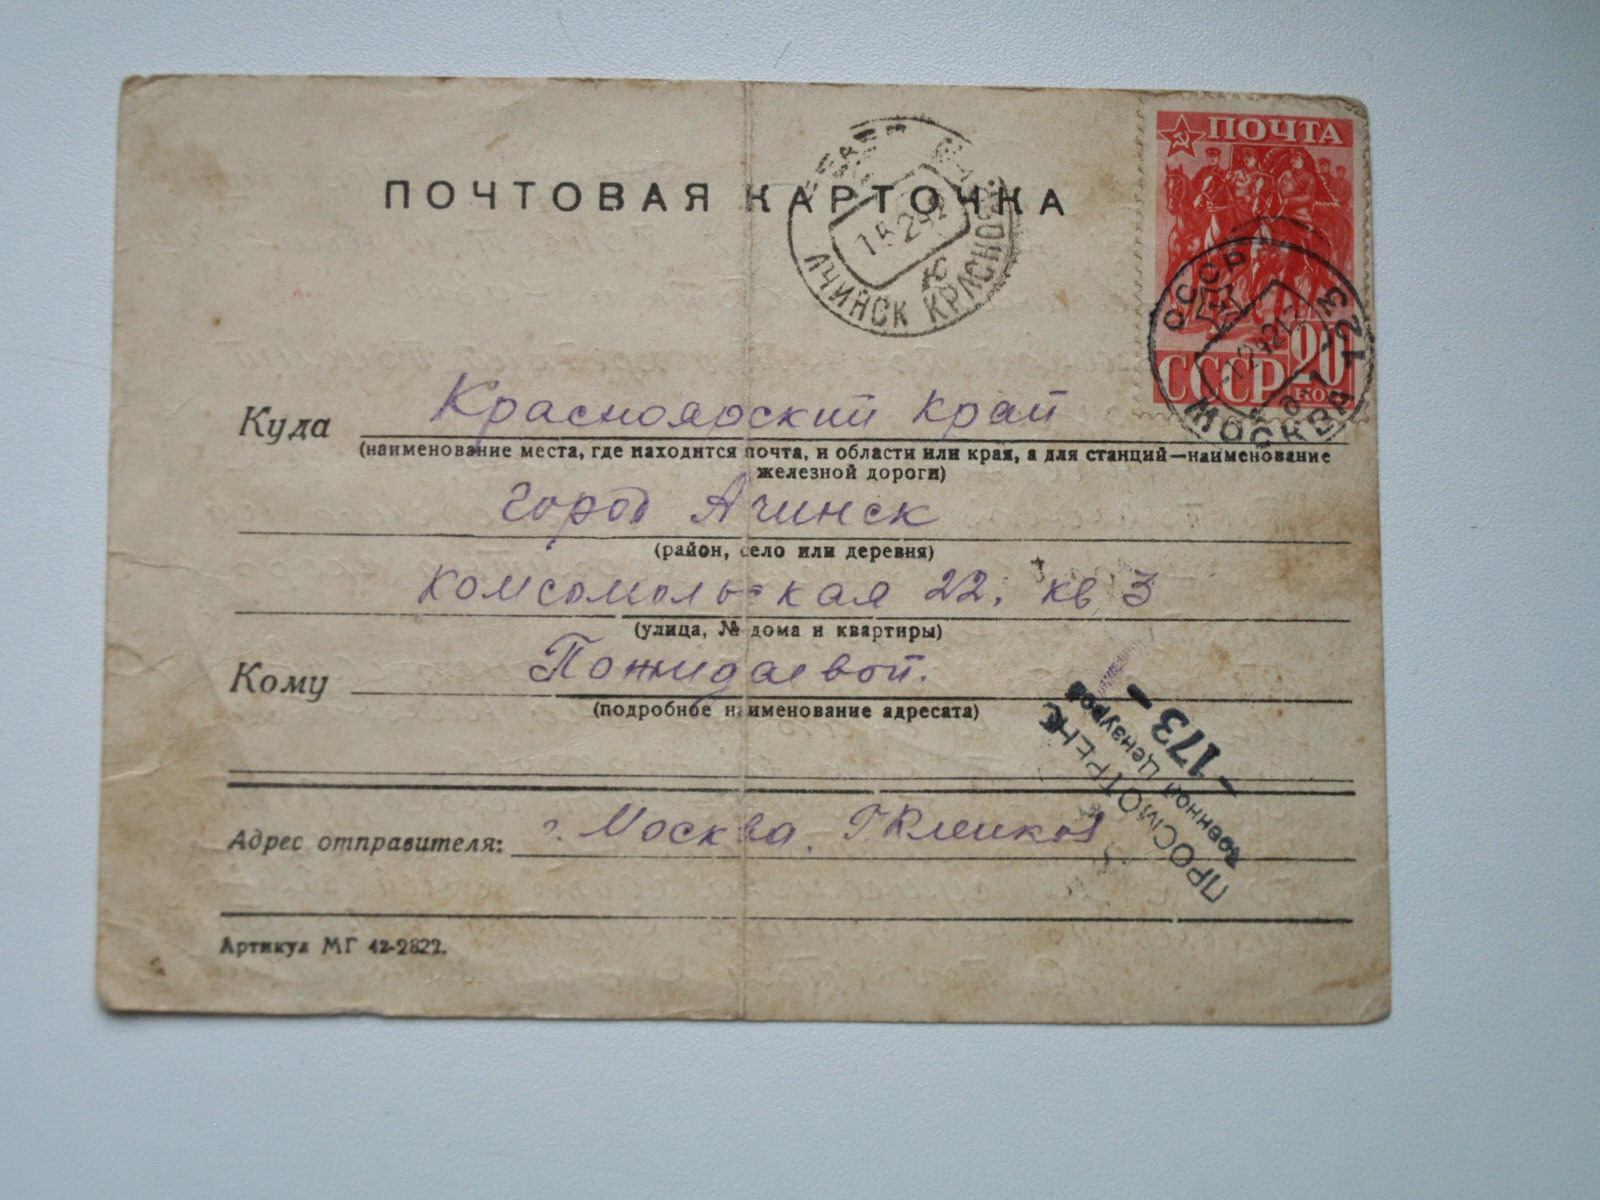 ПОЧТОВАЯ КАРТОЧКА
ПОЧТА
СССР 20
КОП
АЧИНСК КРАСНОЯ
15 2 42
СССР
МОСКВА
Куда Красноярский край
(наименование места, где находится почта, и области или края, а для станций—наименование
железной дороги)
город Ачинск
(район, село или деревня)
Комсомольская 22. кв 3
(улица, № дома и квартиры)
Кому Пожидаевой.
(подробное наименование адресата)
ПРОСМОТРЕНО
Военной Цензурой
-173-
Адрес отправителя: г. Москва.
Артикул МГ 42-2822.